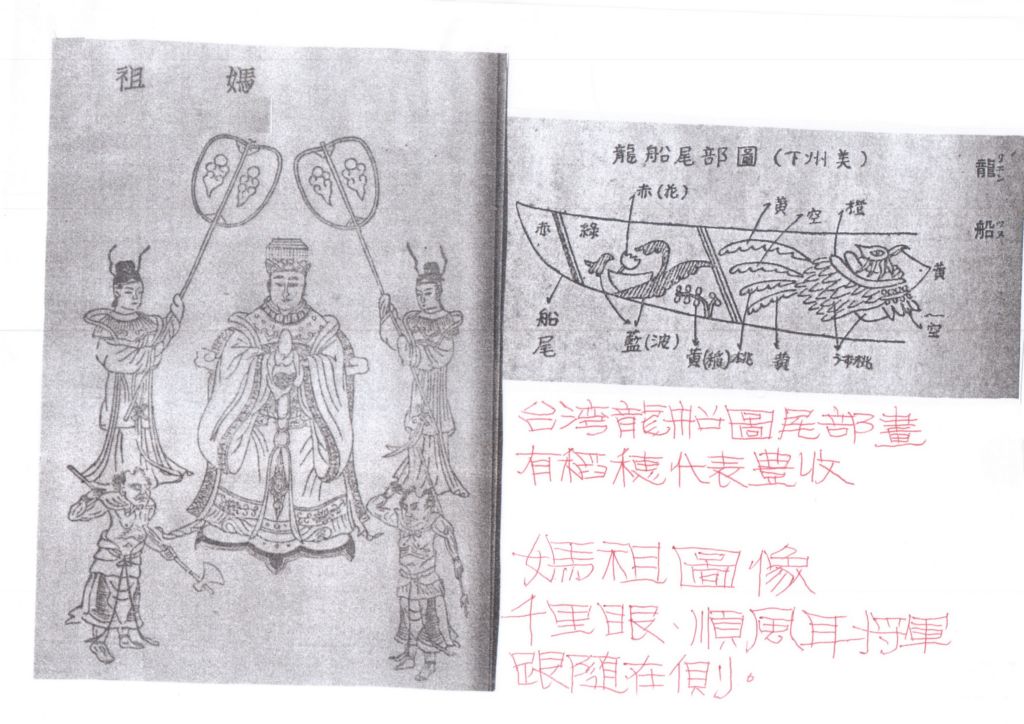 祖 媽
龍船尾部圖(下州美)
龍 リボン
船 ウス
赤(花)
黄
空
橙
赤
綠
黄
船尾
藍(波)
黄(稲)
桃
黄
桃
空
台湾龍船圖尾部畫
有稻穗代表豐收
媽祖圖像
千里眼、順風耳將軍
跟隨在側。